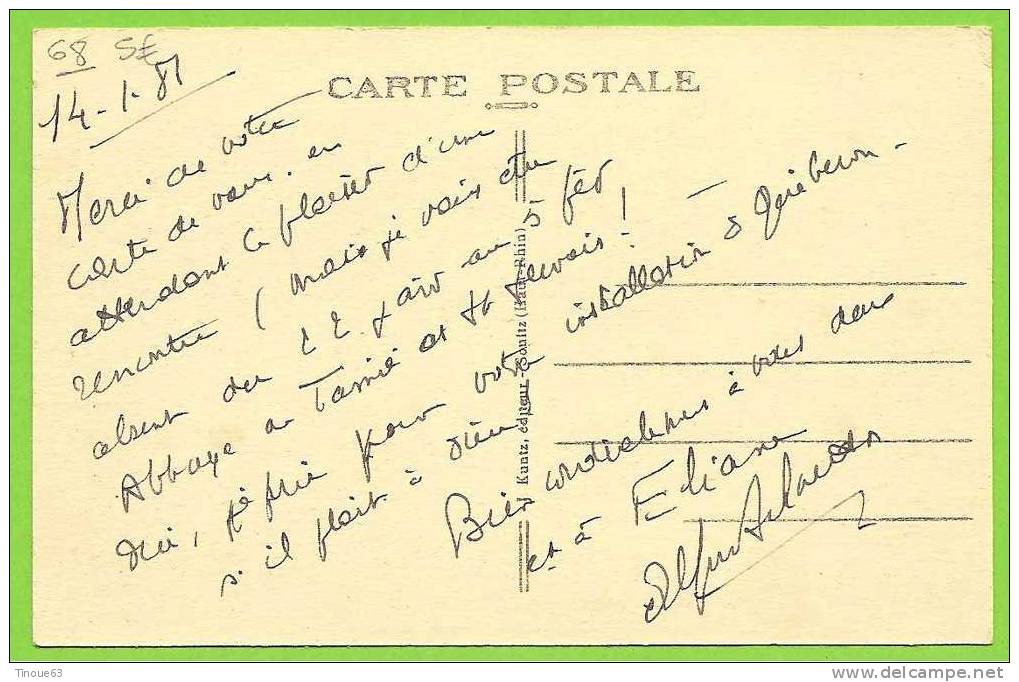 68 5€
14-1-81
CARTE POSTALE
Merci de votre
carte de vœux. en
attendant le plaisir d'une
rencontre (mais je vais être
absent du 22 janv au 5 fév
Abbaye de Tamié et
, je prie pour votre installation à Quiberon -
s'il plait à Dieu
Bien cordialement à vous deux
et à Eliane
J Kuntz, éditeur - Soultz (Haut-Rhin)
Tinoue63
www.delcampe.net